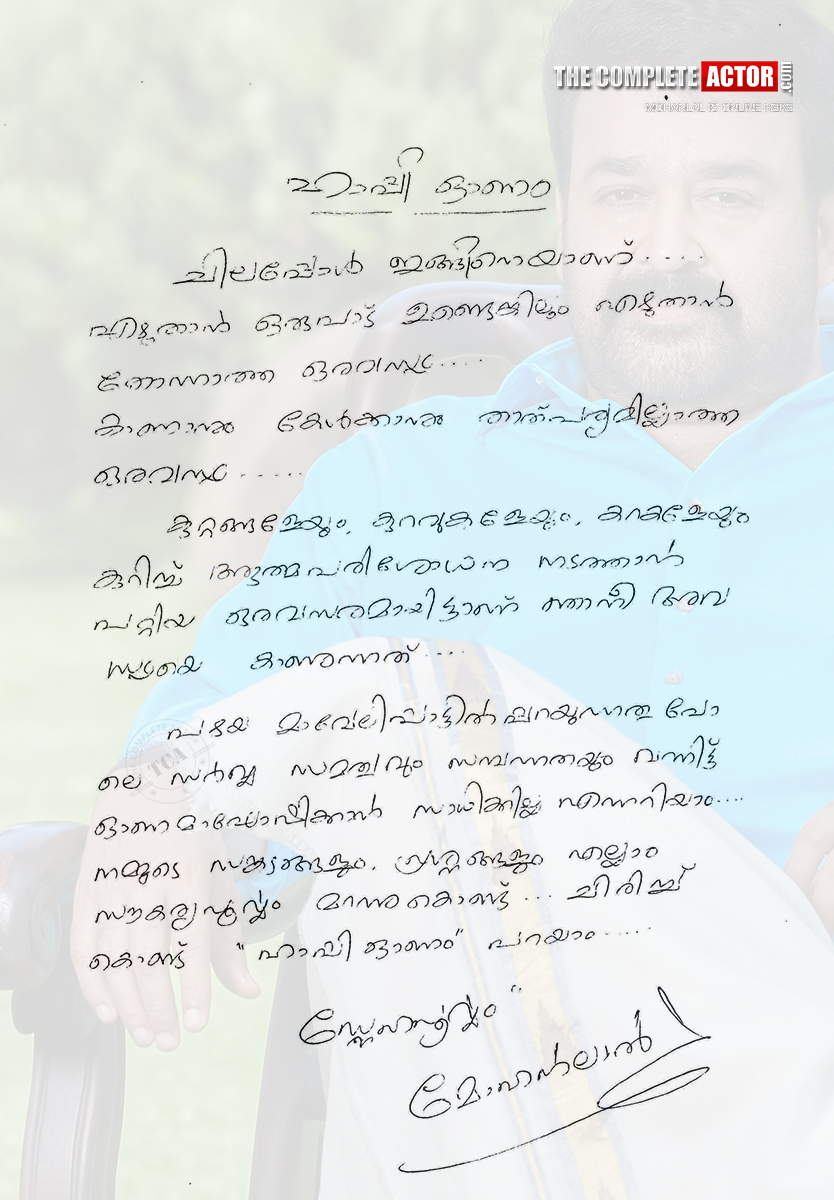 THE COMPLETE ACTOR .com
MOHANLAL IS ONLINE HERE
ഹാപ്പി ഓണം
ചിലപ്പോൾ ഇങ്ങിനെയാണ് ....
എഴുതാൻ ഒരുപാട് ഉണ്ടെങ്കിലും എഴുതാൻ
തോന്നാത്ത ഒരവസ്ഥ ....
കാണാനും കേൾക്കാനും താത്പര്യമില്ലാത്ത
ഒരവസ്ഥ ......
കുറ്റങ്ങളേയും, കുറവുകളേയും, കറകളേയും
കുറിച്ച് ആത്മപരിശോധന നടത്താൻ
പറ്റിയ ഒരവസരമായിട്ടാണ് ഞാനീ അവ
സ്ഥയെ കാണുന്നത് ....
പഴയ മാവേലിപ്പാട്ടിൽ പറയുന്നതു പോ
ലെ സർവ്വ സമത്വവും സമ്പന്നതയും വന്നിട്ട്
ഓണമാഘോഷിക്കാൻ സാധിക്കില്ല എന്നറിയാം ....
നമ്മുടെ സങ്കടങ്ങളും, പ്രശ്നങ്ങളും എല്ലാം
സൗകര്യപൂർവ്വം മറന്നുകൊണ്ട് ... ചിരിച്ച്
കൊണ്ട് "ഹാപ്പി ഓണം" പറയാം .....
സ്നേഹപൂർവ്വം "
മോഹൻലാൽ
TCA